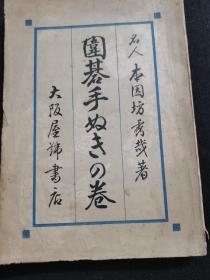 名人 本因坊秀哉著
圍碁手ぬきの巻
大阪屋號書店